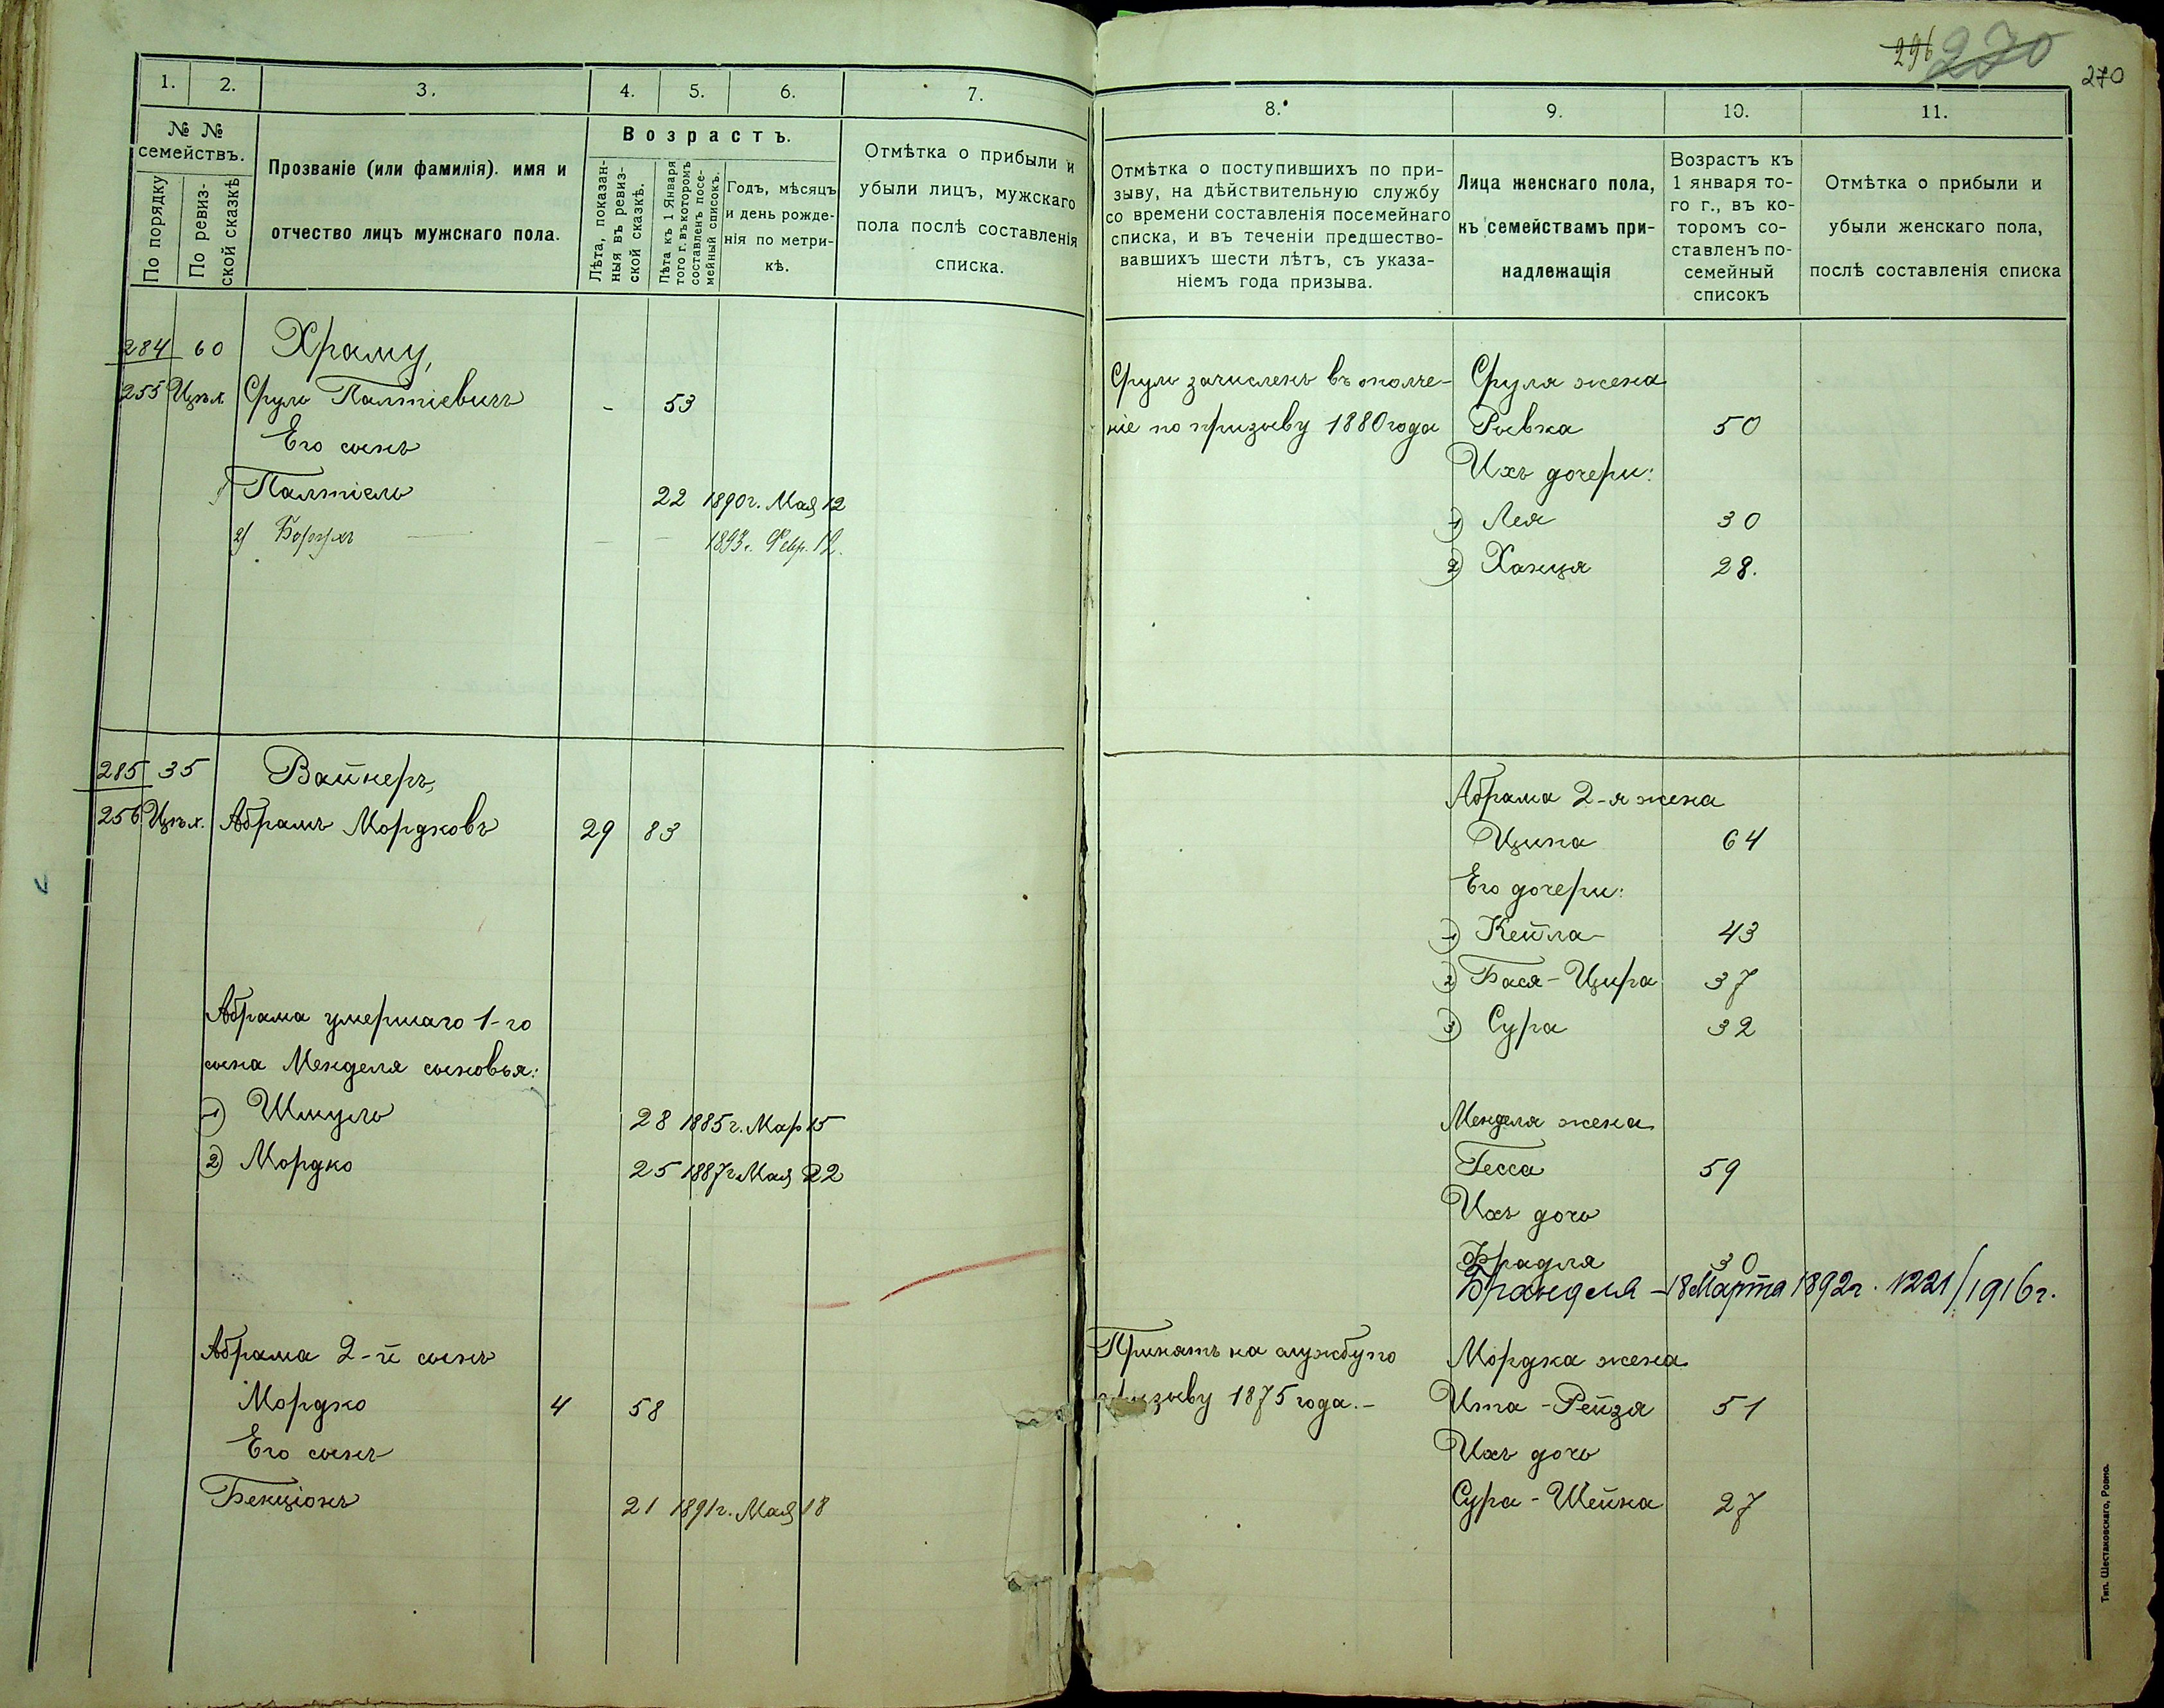 296 270
270
1. 2. 3. 4. 5. 6. 7.
№ № семействъ.
По порядку
По ревиз-
ской сказкѣ
Прозваніе (или фамилія). имя и
отчество лицъ мужскаго пола.
Возрастъ.
Лѣта, показан-
ныя въ ревиз-
ской сказкѣ.
Лѣта къ 1 Января
того г. въ которомъ
составленъ посе-
мейный списокъ.
Годъ, мѣсяцъ
и день рожде-
нія по метри-
кѣ.
Отмѣтка о прибыли и
убыли лицъ, мужскаго
пола послѣ составленія
списка.
284 60 Храму,
255 Цѣл. Сруль Палтіевичъ - 53
Его сынъ
Палтіель 22 1890г. Мая 12
2) Борухъ — — — 1893г. Февр. 12.
285 35 Вайнеръ,
256 Цѣл. Абрамъ Мордковъ 29 83
Абрама умершаго 1-го
сына Менделя сыновья:
1) Шмуль 28 1885г. Мар 15
2) Мордко 25 1887г Мая 22
Абрама 2-й сынъ
Мордко 4 58
Его сынъ
Бенціонъ 21 1891г. Мая 18
8. 9. 10. 11.
Отмѣтка о поступившихъ по при-
зыву, на дѣйствительную службу
со времени составленія посемейнаго
списка, и въ теченіи предшество-
вавшихъ шести лѣтъ, съ указа-
ніемъ года призыва.
Лица женскаго пола,
къ семействамъ при-
надлежащія
Возрастъ къ
1 января то-
го г., въ ко-
торомъ со-
ставленъ по-
семейный
списокъ
Отмѣтка о прибыли и
убыли женскаго пола,
послѣ составленія списка
Сруль зачисленъ въ ополче- Сруля жена
ніе по призыву 1880 года Рывка 50
Ихъ дочери:
1) Лея 30
2) Ханця 28.
Абрама 2-я жена
Ципа 64
Его дочери:
1) Кейла 43
2) Бася-Цира 37
3) Сура 32
Менделя жена
Гесса 59
Ихъ дочь
Фрадля 30
Бранделя - 18 Марта 1892г. 1221/1916г.
Принятъ на службу по Мордка жена
призыву 1875 года.- Ита-Рейзя 51
Ихъ дочь
Сура-Шейна 27
Тип. Шестаковскаго, Ровно.